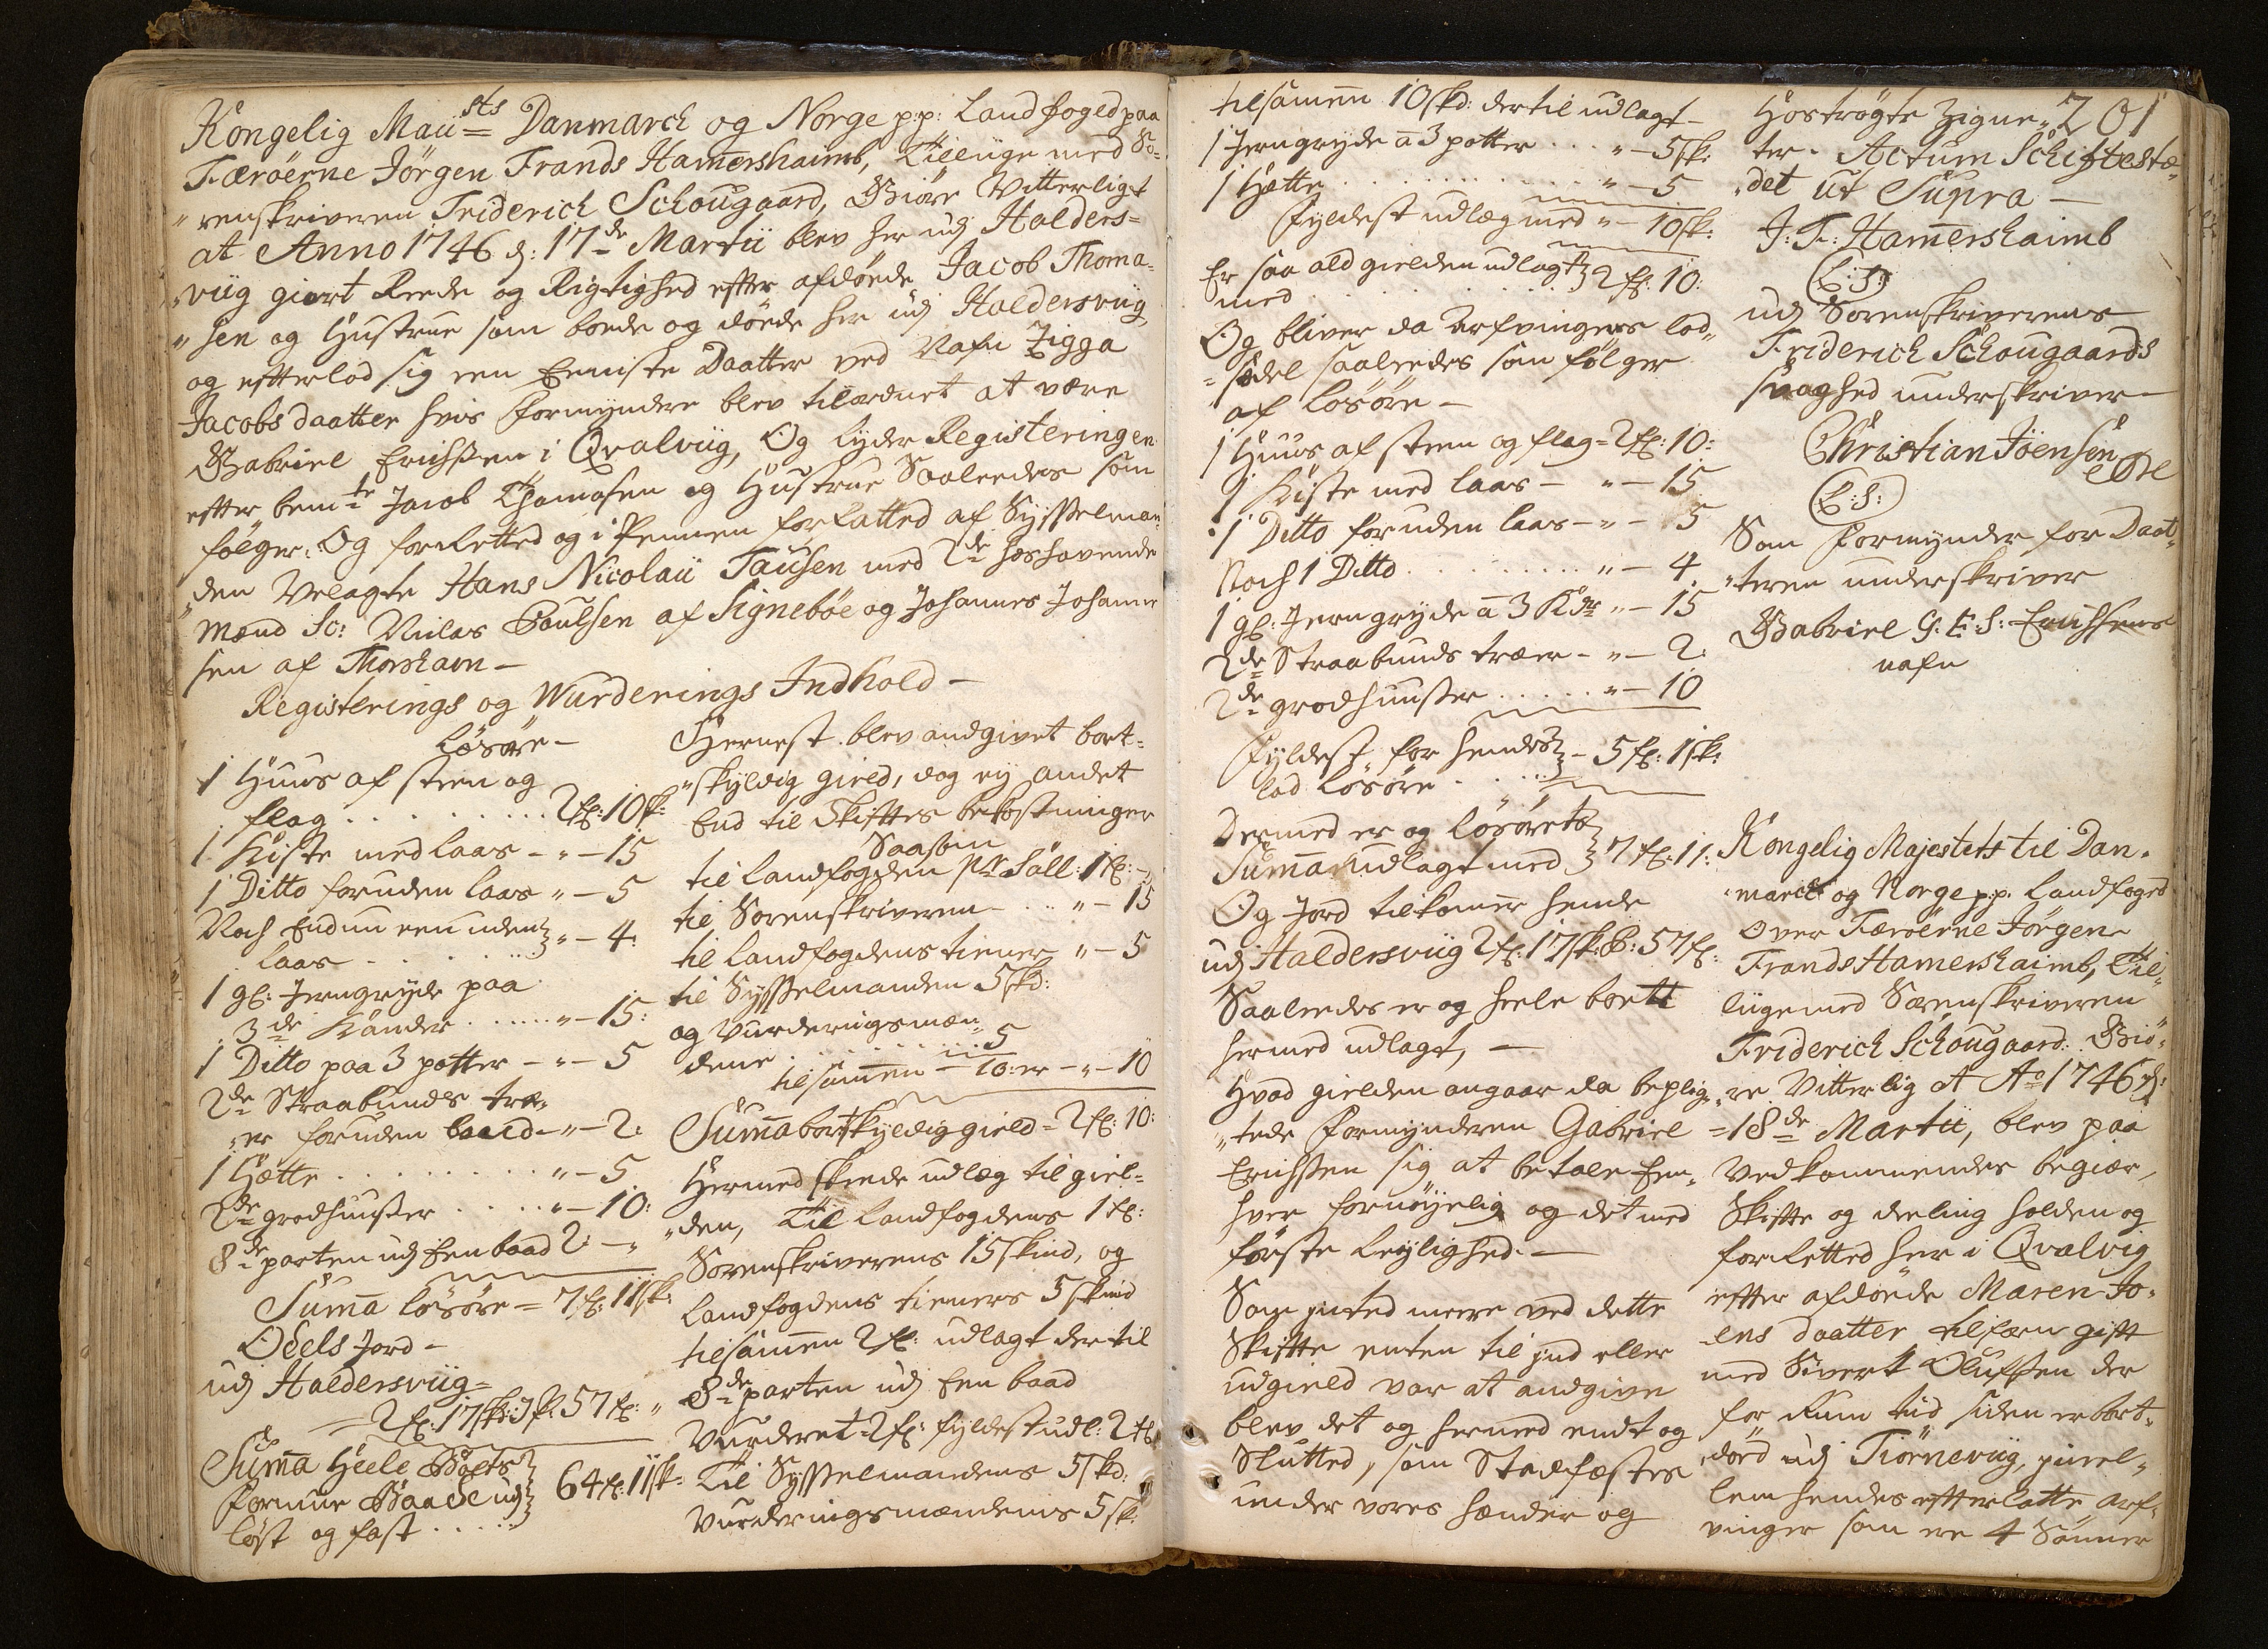 Kongelig Maii sts Danmarck og Norge p:p: Landfoged paa
Færöerne Jörgen Frands Hamershaimb, Tillige med So-
"renskriveren Friderich Schougaard, Giöre Vitterligt
at Anno 1746 d: 17de Martii blev her udj Halders=
"viig giort Reede og Rigtighed efter afdöede Jacob Thoma-
"sen og Hustrue som boede og döede her udj Haldersviig
og efterlod sig een Eeniste Daatter ved Nafn Zigga
Jacobsdaatter hvis Formyndere blev tilordnet at være
Gabriel Erichssen i Qvalviig, Og lyder Registeringen
efter bemte Jacob Thomasen og Hustrue Saaledes som
fölger. Og forretted og i Pennen forfatted af Sysselman
"den Velagte Hans Nicolaii Tausen med 2de hoshavende
Mænd Sc: Niclas Poulsen af Signeböe og Johannes Johanne
sen af Thorshavn -
Registerings og Wurderings Indhold -
Lösöre -
1 Huus af steen og
flag . . . . . . . . 2 f: 10 sk:
1 Kiste med laas - " - 15
1 Ditto foruden laas " - 5
Noch Endnu een uden
laas . . . . . " - 4:
1 gl: Jerngryde paa
3de Kander . . . . . " - 15:
1 Ditto paa 3 potter - " - 5
2de Straabunds træ-
"er foruden baand - " - 2:
1 Hætte . . . . . . . . " - 5
2de grodhuusser . . . . " - 10:
8de parten udj Een baad 2: - "
Suma lösöre = 7 f: 11 sk:
Odels Jord -
udj Haldersviig =
= 2 f: 17 sk: 57 f: "
Suma Heele Boets
formue Baade udj 64 f: 11 sk:
löst og fast . . . .
Hernest blev andgivet bort=
"skyldig gield, dog ej andet
End til Skiftes bekostninger
Saasom
til Landfogden pr Sall: 1 f: - "
til Sorenskriveren . . " - 15
til Landfogdens tiener " - 5
til Sysselmanden 5 skd:
og Vurderingsmæn-
dene . . . . . . . . 5
tilsamen - 10: er - " - 10
Suma bortskyldig gield = 2 f: 10:
Hermed skeede udlæg til giel=
"den, Til Landfogdens 1 f:
Sorenskriverens 15 skind, og
Landfogdens tieners 5 skind
tilsamen 2 f: udlagt der til
8de parten udj Een baad
Vurderet = 2 f: fyldest udl: 2 f:
Til Sysselmandens 5 skd:
Vurderingsmændenis 5 sk:
tilsamenn 10 skd: der til udlagt -
1 Jerngryde a 3 potter . . . " - 5 sk:
1 Hætte . . . . . . . . . . . " - 5
Fyldest udlæg med " - 10 sk:
Er saa ald gielden udlagt 2 f: 10:
med . . . . . . .
Og bliver da Arfvingens lod=
=sedel saaledes som fölger
af Lösöre -
1 Huus af steen og flag = 2 f: 10:
1 Kiste med laas - " - 15
1 Ditto foruden laas - " - 5
Noch 1 Ditto . . . . . . . . " - 4
1 gl: Jerngryde a 3 Kdr " - 15
2de Straabunds træer - " - 2:
2de grodhuusser . . . . . " - 10
Fyldest for hendes - 5 f: 1 sk:
lod Lösöre . . . .
Dermed er og Lösörets
Suma udlagt med 7 f: 11:
Og Jord tilkomer hende
udj Haldersviig 2 f: 17 sk: 57 f:
Saaledes er og heele boett
hermed udlagt, -
Hvad gielden angaar da beplig-
"tede Formynderen Gabriel
Erichssen sig at betale Een-
hver fornöyelig og det med
förste leylighed. -
Som inted meere ved dette
Skifte enten til ind eller
udgield var at andgive
blev det og hermed endt og
Slutted, som Stadfæstes
under vores hænder og
201
Hoströgte Zigne-
ter. Actum Schiftestæ-
"det ut Supra -
J: F: Hamershaimb
(L:S:)
udj Sorenskriverens
Friderich Schougaards
svaghed underskriver -
Christian Jöensen
(L:S:)
Som Formynder for Daat-
"teren underskriver
Gabriel G: E: S: Erichssens
nafn
Kongelig Majestets til Dan-
"marck og Norge p:p: Landfoged
over Færöerne Jörgen
Frands Hamershaimb, Til-
liige med Sorenskriveren
Friderich Schougaard: Giö-
"re Vitterlig at Ao 1746 d:
=18de Martii, blev paa
Vedkommendes begiær,
Skifte og deeling holden og
forretted her i Qvalvig
efter afdöede Maren Jo-
-ens daatter tilforn gift
med Sivert Olufssen der
for Rum tiid siden er bort-
"död udj Tiörneviig, imel-
lem hendes efterlatte arf-
vinger som ere 4 Sönner